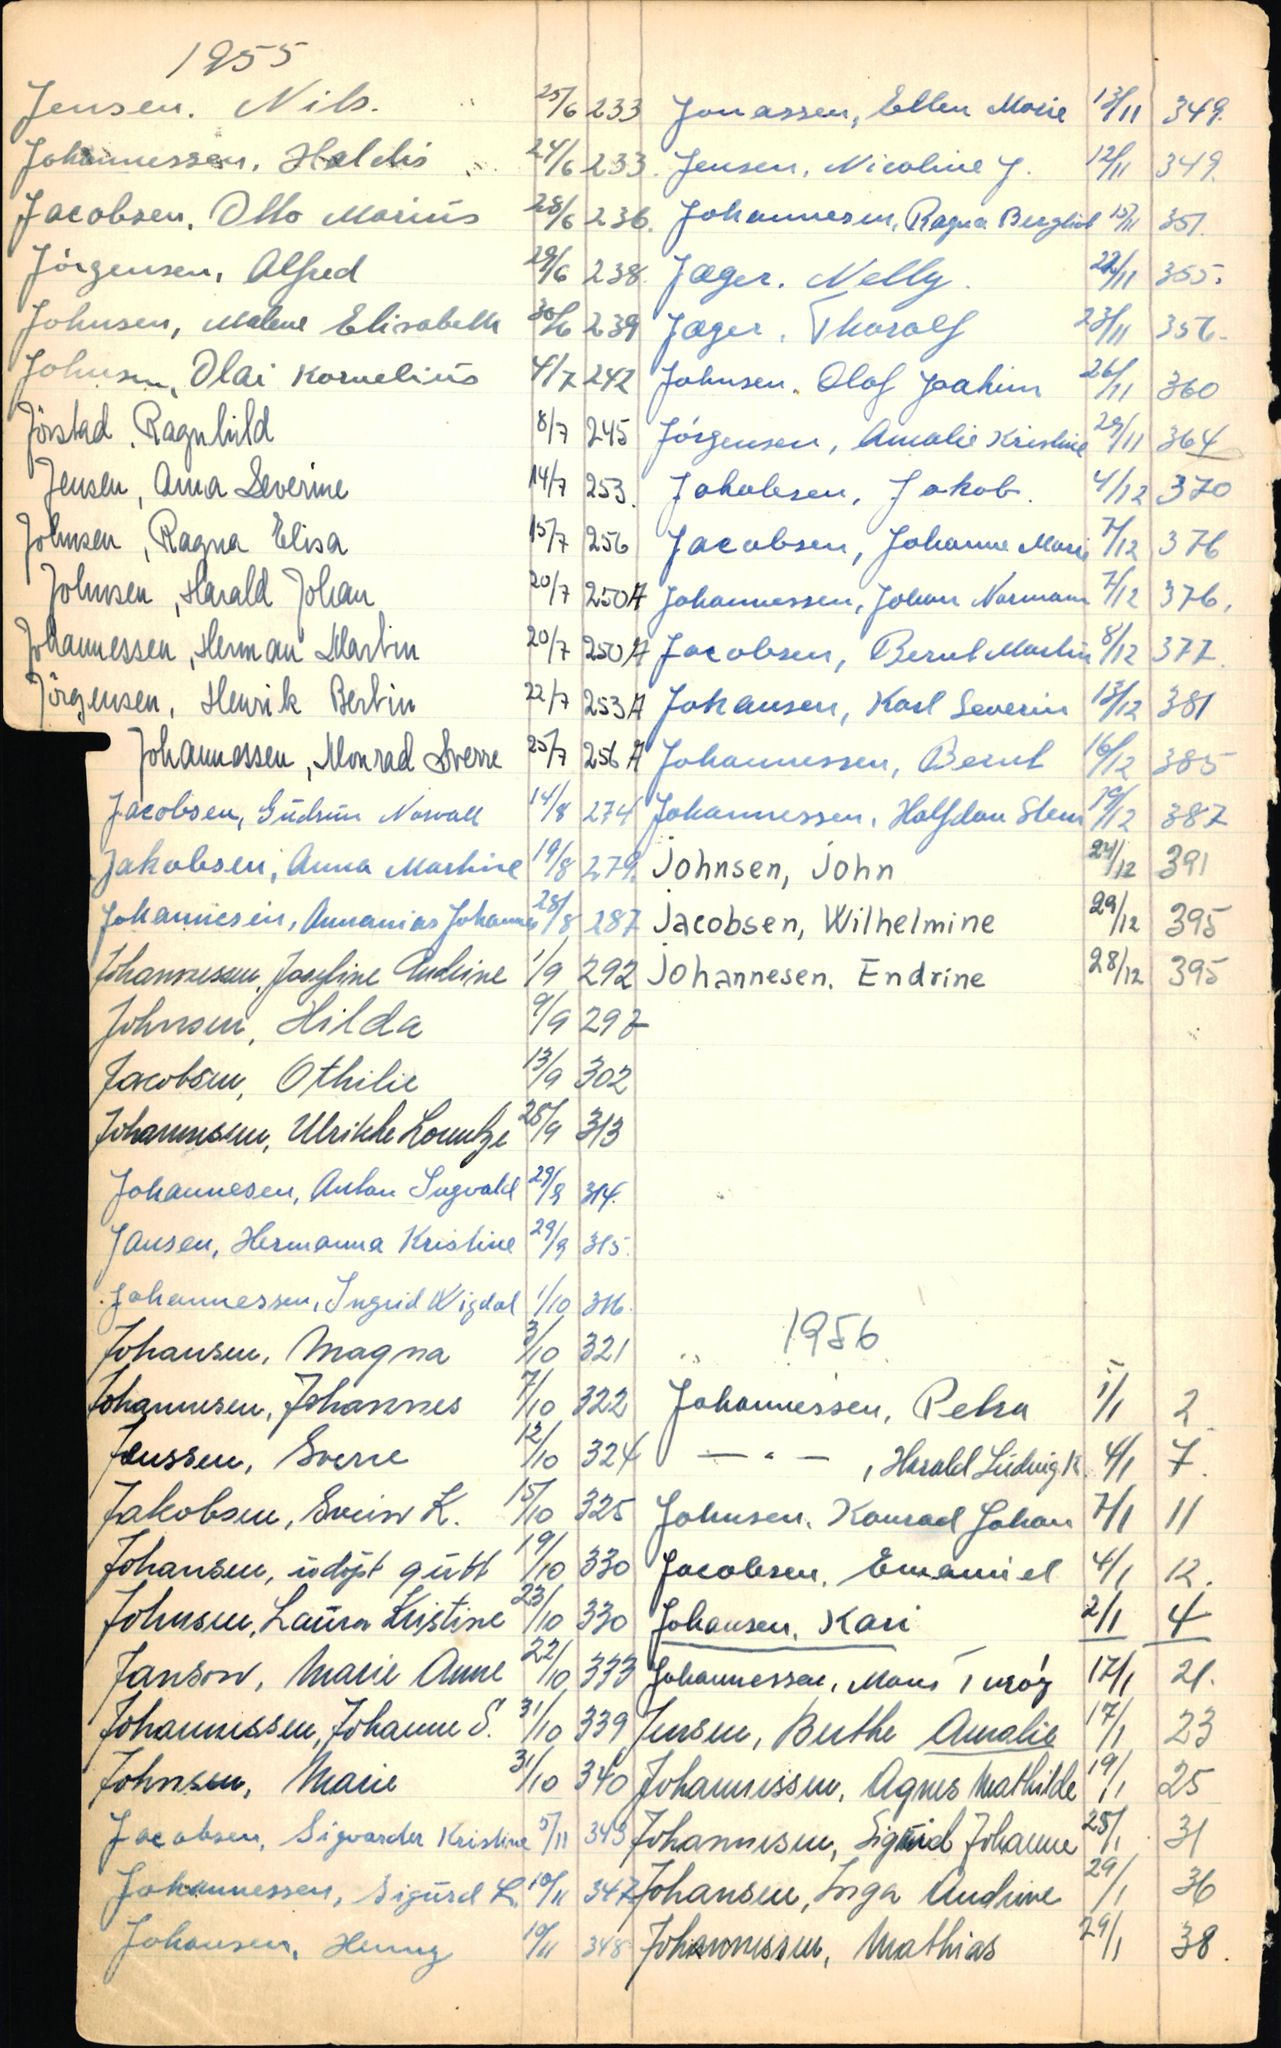 1955
Jensen. Nils. 25/6 233
Johannessen, Haldis 24/6 233.
Jacobsen, Otto Marius 28/6 236.
Jörgensen, Alfred 29/6 238
Johnsen, Malene Elisabeth 30/6 239
Johnsen, Olai Kornelius 4/7 242
Jörstad, Ragnhild 8/7 245
Jensen, Anna Severine 14/7 253.
Johnsen, Ragna Elisa 15/7 256
Johnsen, Harald Johan 20/7 250A
Johannessen, Herman Martin 20/7 250A
Jörgensen, Henrik Bertin 22/7 253A
Johannessen, Monrad Sverre 25/7 256A
Jacobsen, Gudrun Norvall 14/8 274
Jakobsen, Anna Martine 19/8 279.
Johannesen, Annanias Johannes 28/8 287
Johannessen, Josefine Andrine 1/9 292
Johnsen, Hilda 9/9 297
Jacobsen, Othilie 13/9 302
Johannesen, Ulrikke Lorentze 28/9 313
Johannesen, Anton Ingvald 29/9 314.
Jansen, Hermanna Kristine 29/9 315.
Johannessen, Ingrid Vigdal 1/10 316.
Johansen, Magna 3/10 321
Johannesen, Johannes 7/10 322
Jenssen, Sverre 12/10 324
Jakobsen, Svein K. 15/10 325
Johansen, udöpt gutt 19/10 330
Johnsen, Laura Kristine 23/10 330
Janson, Marie Anne 22/10 333
Johannessen, Johanne S. 31/10 339
Johnsen, Marie 31/10 340
Jacobsen, Sigvarder Kristine 5/11 343
Johannessen, Sigurd L. 10/11 347
Johansen, Henny 10/11 348
Jonassen, Ellen Marie 13/11 349.
Jensen, Nicoline J. 12/11 349.
Johannesen, Ragna Bergliot 15/11 351.
Jæger. Nelly. 22/11 355.
Jæger. Thoralf 23/11 356.
Johnsen. Olaf Joakim 26/11 360
Jörgensen, Amalie Kristine 29/11 364
Jakobsen, Jakob. 4/12 370
Jacobsen, Johanne Marie 7/12 376
Johannessen, Johan Normann 7/12 376.
Jacobsen, Bernt Martin 8/12 377.
Johansen, Karl Severin 13/12 381
Johannessen, Bernt 16/12 385
Johannessen, Halfdan Stein 19/12 387
Johnsen, John 24/12 391
Jacobsen, Wilhelmine 29/12 395
Johannesen. Endrine 28/12 395
1956
Johannessen, Petra 1/1 2.
— " — , Harald Ludvig K. 4/1 7.
Johnsen. Konrad Johan 7/1 11
Jacobsen. Emanuel 4/1 12.
Johansen. Kari 2/1 4
Johannessen, 17/1 21.
Jensen, Berthe Amalie 17/1 23
Johannessen, Agnes Mathilde 19/1 25
Johannesen, Sigrid Johanne 25/1 31
Johansen, Inga Andrine 29/1 36
Johannessen, Mathias 29/1 38.